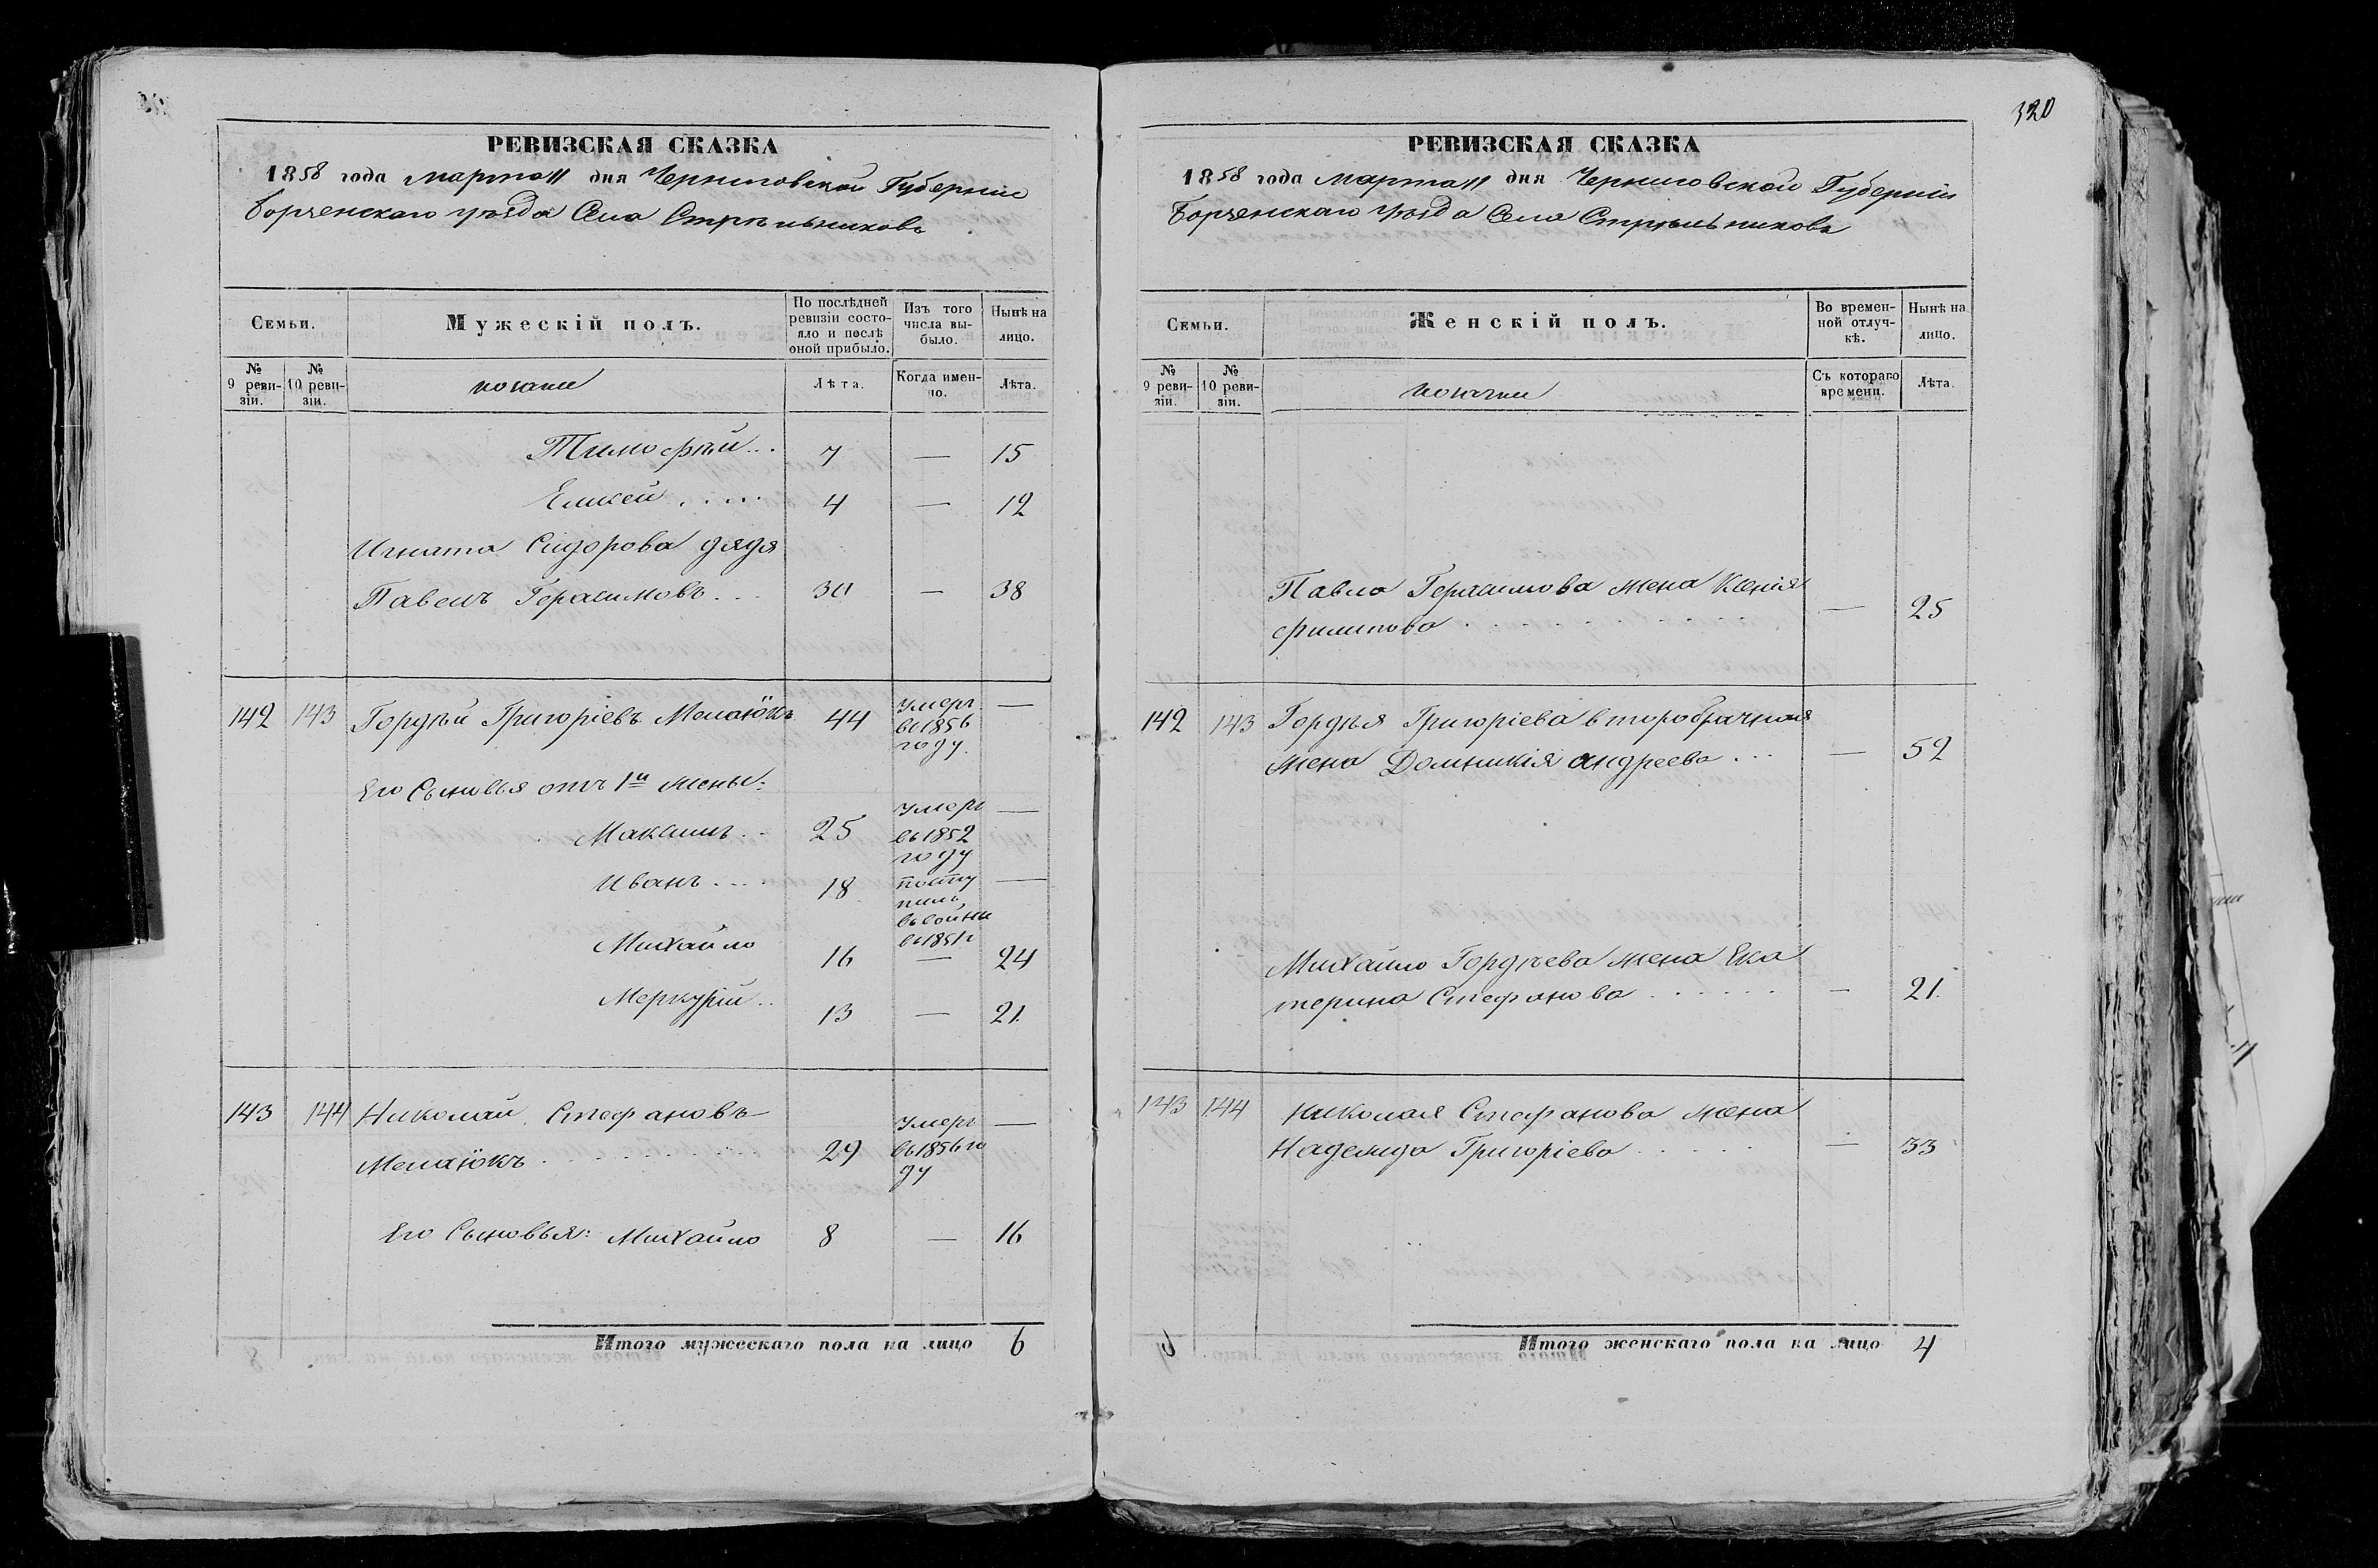 РЕВИЗСКАЯ СКАЗКА
1858 года марта 11 дня Черниговской Губерніи
Борзенскаго уѣзда Села Стрѣльниковъ
Семьи.
Мужескій полъ.
По послѣдней ревизіи состояло и послѣ оной прибыло.
Изъ того числа выбыло.
Нынѣ на лицо.
№ 9 ревизіи.
№ 10 ревизіи.
козаки
Лѣта.
Когда именно.
Лѣта.
Тимофѣй... 7 — 15
4 — 12
Игната Сидорова дядя
Павелъ Герасимовъ... 30 — 38
142 143 Гордѣй Григоріевъ 44 умеръ въ 1856 году. —
Его Сыновья отъ 1й жены:
Максимъ.. 25 умеръ въ 1852 году —
Иванъ.... 18 поступилъ въ 1851 —
Михайло 16 — 24
Меркурій.. 13 — 21.
143 144 Николай Стефановъ
29 умеръ въ 1856 году —
Его Сыновья: Михайло 8 — 16
Итого мужескаго пола на лицо 6
320
РЕВИЗСКАЯ СКАЗКА
1858 года марта 11 дня Черниговской Губерніи
Борзенскаго уѣзда Села Стрѣльникова
Семьи.
Женскій полъ.
Во временной отлучкѣ.
Нынѣ на лицо.
№ 9 ревизіи.
№ 10 ревизіи.
козачки
Съ котораго времени.
Лѣта.
Павла Герасимова жена Ксенія
Филипова — 25
142 143 Гордѣя Григоріева второбрачная
жена Домникія андреева... — 52
Михайло Гордѣева жена Ека
терина Стефанова — 21.
143 144 Николая Стефанова жена
Надежда Григоріева — 33
Итого женскаго пола на лицо 4